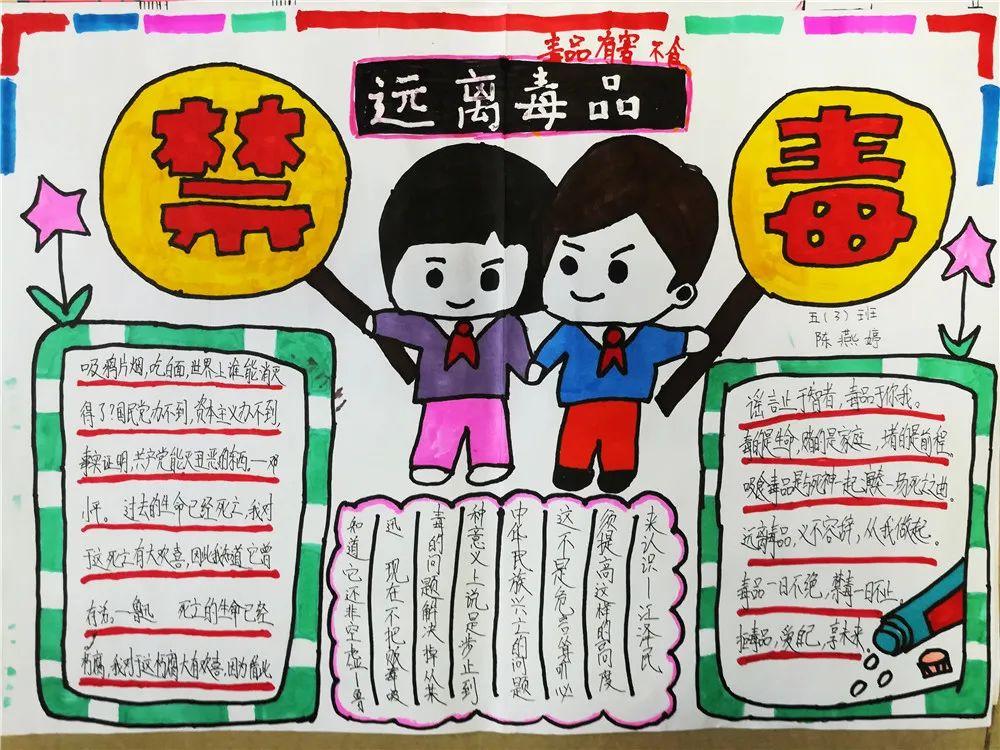 毒品有害 不食
远离毒品
禁
毒
五(3)班
陈燕婷
吸鸦片烟,吃白面,世界上谁能消灭
得了?国民党办不到,资本主义办不到,
事实证明,共产党能灭丑恶的东西.—邓
小平。过去的生命已经死亡,我对
于这死亡有大欢喜,因此我知道它曾
存活。—鲁迅 死亡的生命已经
朽腐,我对于这朽腐大有欢喜,因为借此
知道它还非空虚—鲁
迅 现在不把贩毒吸
毒的问题解决掉从某
种意义上说是步止到
中华民族兴亡的问题
这不是危言耸听必
须提高这样的高度
来认识—江泽民
谣言止于智者,毒品于你我。
毒的是生命,赌的是家庭,堵的是前程
吸食毒品是与死神一起演奏一场死亡之曲。
远离毒品,义不容辞,从我做起。
毒品一日不绝,禁毒一日不止。
拒毒品,爱自己,享未来.